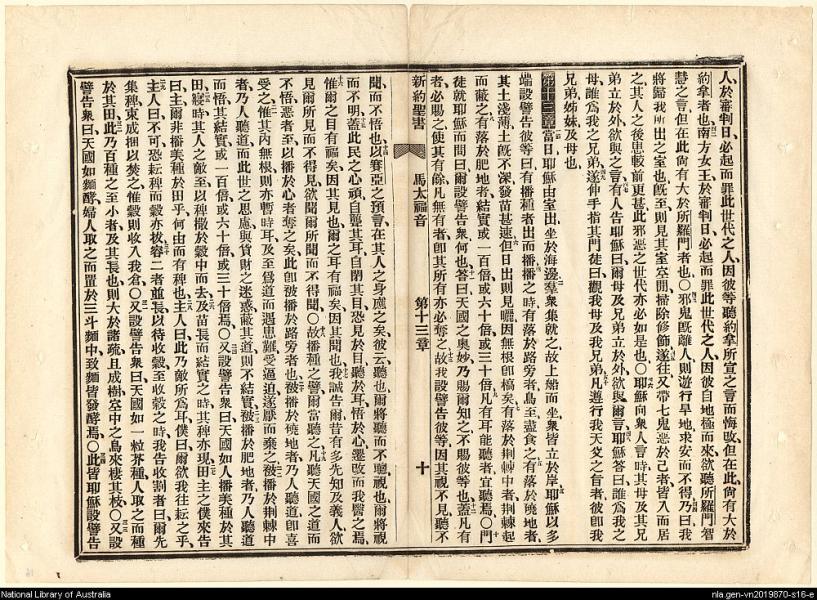 人、於審判日必起而罪此世代之人、因彼等聽約拿所宣之言而悔改、但在此尙有大於
約拿者也、南方女王於審判日必起而罪此世代之人、因彼自地極而來、欲聽所羅門智
慧之言、但在此尙有大於所羅門者也、○邪鬼旣離人、則游行旱地、求安而不得、乃曰、我
將歸我所出之室也、旣至、則見其室空閒、掃除修飾、遂往又帶七鬼惡於己者、皆入而居
之、其人之後患較前更甚、此邪惡之世代亦必如是也、○耶穌向衆人言時、其母及其兄
弟立於外、欲與之言、有人告耶穌曰、爾母及兄弟立於外、欲與爾言、耶穌答曰、誰爲我之
母、誰爲我之兄弟、遂伸手指其門徒曰、觀我母及我兄弟、凡遵行我天父之旨者、彼卽我
兄弟姊妹及母也、
第十三章 當日耶穌由室出、坐於海邊、羣衆集就之、故上船而坐、衆皆立於岸、耶穌以多
端設譬告彼等曰、有播種者出而播、播之時、有落於路旁者、鳥至盡食之、有落於磽地者、
其土淺薄、土旣不深、發苗甚速、但日出則見曬、因無根卽槁矣、有落於荆棘中者、荆棘起
而蔽之、有落於肥地者、結實或一百倍、或六十倍、或三十倍、凡有耳能聽者、宜聽焉、○門
徒就耶穌而問曰、爾設譬告衆何也、答曰、天國之奧妙、乃賜爾知之、不賜彼等也、蓋凡有
者必賜之、使其有餘、凡無有者、卽其所有、亦必奪之、故我設譬告彼等、因其視不見、聽不
新約聖書 馬太福音 第十三章 十
聞、而不悟也、以賽亞之預言、在其人之身應之矣、彼云、聽也、爾將聽而不聰、視也、爾將視
而不明、蓋此民之心頑、自聾其耳、自閉其目、恐見於目、聽於耳、悟於心、遷改而我醫之焉、
惟爾之目有福矣、因其見也、爾之耳有福矣、因其聞也、我誠告爾、昔有多先知及義人、欲
見爾所見而不得見、欲聞爾所聞而不得聞、○故播種之譬、爾當聽之、凡聽天國之道而
不悟、惡者至、以播於心者奪之矣、此卽被播於路旁者也、被播於磽地者、乃人聽道、卽喜
受之、惟其內無根、則亦暫時耳、及至爲道而遇患難、受逼迫、遂厭而棄之、被播於荆棘中
者、乃人聽道、而此世之思慮與貨財之迷惑蔽其道、則不結實、被播於肥地者、乃人聽道
而悟、其結實或一百倍、或六十倍、或三十倍焉、○又設譬告衆曰、天國如人播美種於其
田、寢時、其人之敵至、以稗撒於穀中而去、及苗長而結實之時、其稗亦現、田主之僕來告
曰、主人、爾非播美種於田乎、何由而有稗也、主人曰、此乃敵所爲耳、僕曰、爾欲我往耘之乎、
主人曰、不可、恐耘稗而穀亦拔、容二者並長、以待收穀、至收穀之時、我告收割者曰、爾先
集稗、束成捆以焚之、惟穀則收入我倉、○又設譬告衆曰、天國如一粒芥種、人取之而種
於其田、此乃百種之至小者、及其長也、則大於諸蔬、且成樹、空中之鳥來棲其枝、○又設
譬告衆曰、天國如麵酵、婦人取之而置於三斗麵中、致麵皆發酵焉、○此皆耶穌設譬告
National Library of Australia
nla.gen-vn2019870-s16-e